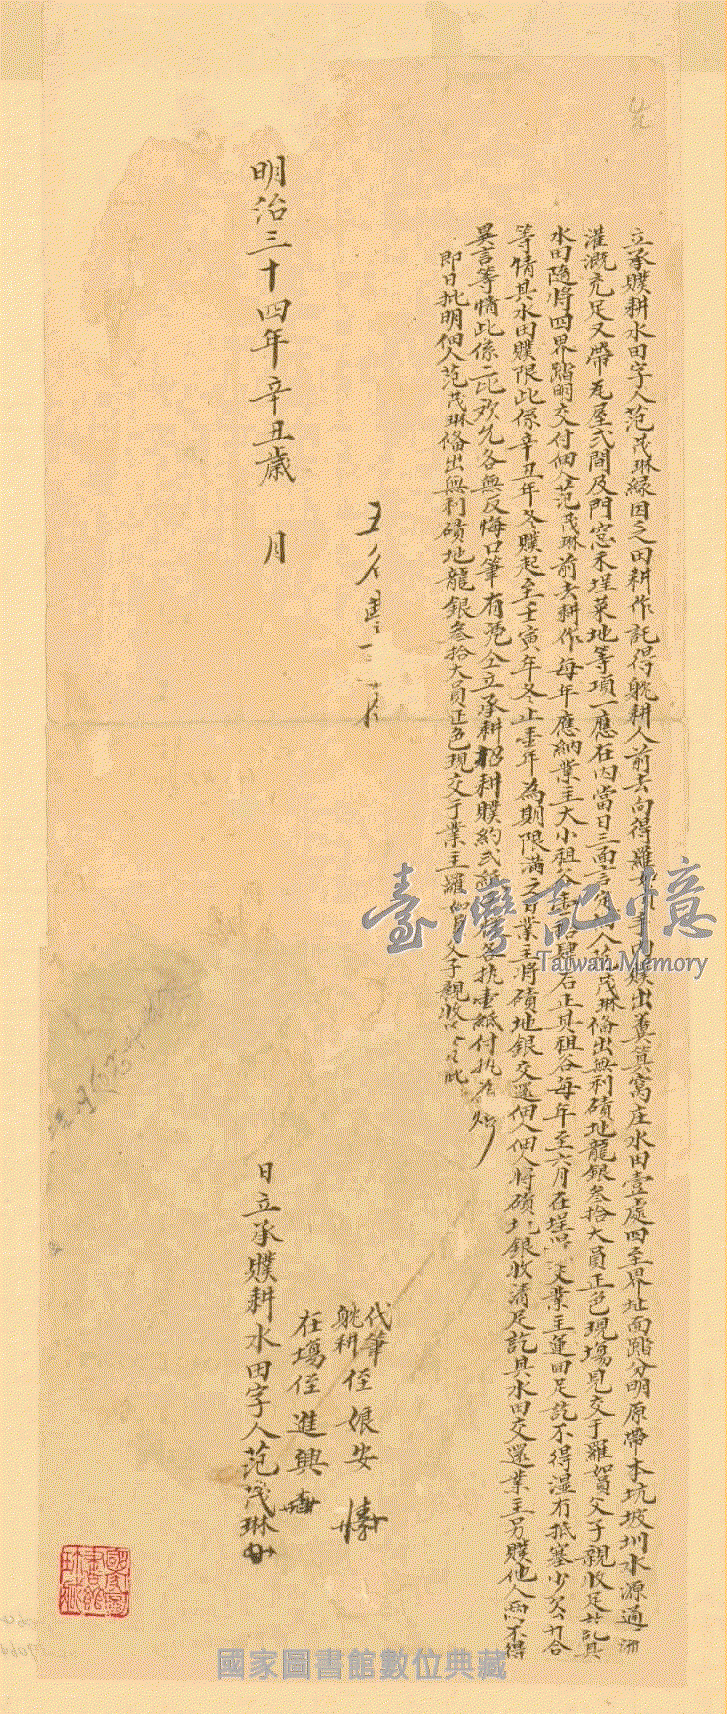 立承贌耕水田字人范茂琳緣因乏田耕作託得就耕人前去向得羅如員手內贌出黃箕窩庄水田壹處四至界址面踏分明原帶本坑坡圳水源通流
灌溉充足又帶瓦屋弍間及門窓禾埕菜地等項一應在內當日三面言定佃人范茂琳備出無利磧地龍銀叁拾大員正色現塲見交于羅如員父子親收足訖其
水田隨將四界踏明交付佃人范茂琳前去耕作每年應納業主大小租谷 肆石正其租谷每年至六月在埕 交業主運回足訖不得濕有抵塞少欠升合
等情其水田贌限此係辛丑年冬贌起至壬寅年冬止壹年為期限滿之日業主將磧地銀交還佃人佃人將磧地銀收清足訖其水田交還業主另贌他人而不得
異言等情此係二比欢允各無反悔口筆有憑仝立承耕招耕贌約弍紙各执壹紙付执為炤
即日批明佃人范茂琳備出無利磧地龍銀叁拾大員正色現交于業主羅如員父子親收 批
代筆
就耕侄娘安
在塲侄進興
明治三十四年辛丑歲 月 日立承贌耕水田字人范茂琳
臺灣記憶
Taiwan Memory
國家圖書館數位典藏
國家圖書館珍藏